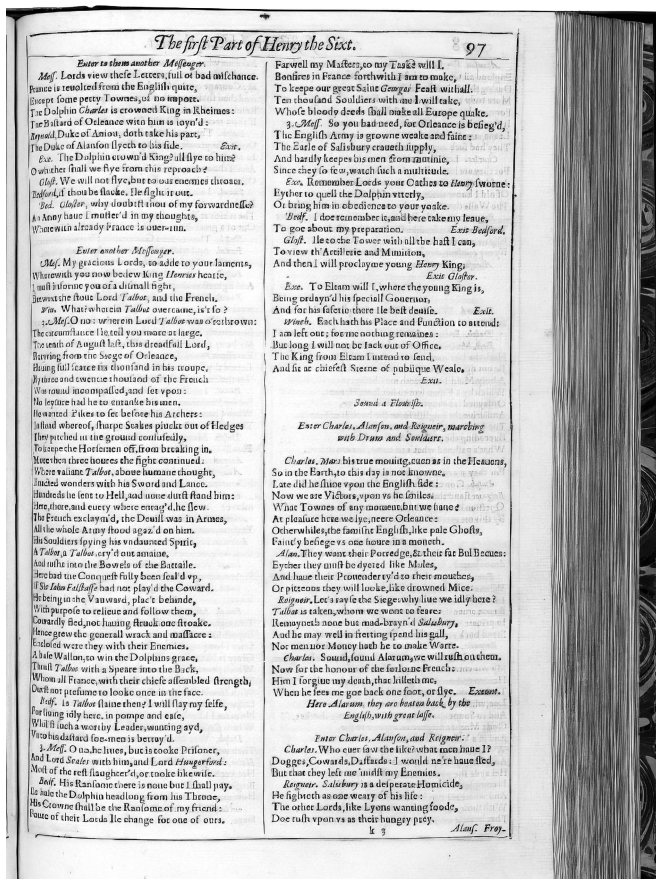 The first Part of Henry the Sixt.
97
Enter to them another Messenger.
Mess. Lords view these Letters, full of bad mischance.
France is reuolted from the English quite,
Except some petty Townes, of no import.
The Dolphin Charles is crowned King in Rheimes:
The Bastard of Orleance with him is ioyn'd:
Reynold, Duke of Aniou, doth take his part,
The Duke of Alanson flyeth to his side. Exit.
Exe. The Dolphin crown'd King? all flye to him?
O whither shall we flye from this reproach?
Glost. We will not flye, but to our enemies throats.
Bedford, if thou be slacke, Ile fight it out.
Bed. Gloster, why doubtst thou of my forwardnesse?
An Army haue I muster'd in my thoughts,
Wherewith already France is ouer-run.
Enter another Messenger.
Mes. My gracious Lords, to adde to your laments,
Wherewith you now bedew King Henries hearse,
I must informe you of a dismall fight,
Betwixt the stout Lord Talbot, and the French.
Win. What? wherein Talbot ouercame, is't so?
3. Mes. O no: wherein Lord Talbot was o'rethrown:
The circumstance Ile tell you more at large.
The tenth of August last, this dreadfull Lord,
Retyring from the Siege of Orleance,
Hauing full scarce six thousand in his troupe,
By three and twentie thousand of the French
Was round incompassed, and set vpon:
No leysure had he to enranke his men.
He wanted Pikes to set before his Archers:
Instead whereof, sharpe Stakes pluckt out of Hedges
They pitched in the ground confusedly,
To keepe the Horsemen off, from breaking in.
More then three houres the fight continued:
Where valiant Talbot, aboue humane thought,
Enacted wonders with his Sword and Lance.
Hundreds he sent to Hell, and none durst stand him:
Here, there, and euery where enrag'd, he slew.
The French exclaym'd, the Deuill was in Armes,
All the whole Army stood agaz'd on him.
His Souldiers spying his vndaunted Spirit,
A Talbot, a Talbot, cry'd out amaine,
And rusht into the Bowels of the Battaile.
Here had the Conquest fully been seal'd vp,
If Sir Iohn Falstaffe had not play'd the Coward.
He being in the Vauward, plac't behinde,
With purpose to relieue and follow them,
Cowardly fled, not hauing struck one stroake.
Hence grew the generall wrack and massacre:
Enclosed were they with their Enemies.
A base Wallon, to win the Dolphins grace,
Thrust Talbot with a Speare into the Back,
Whom all France, with their chiefe assembled strength,
Durst not presume to looke once in the face.
Bedf. Is Talbot slaine then? I will slay my selfe,
For liuing idly here, in pompe and ease,
Whil'st such a worthy Leader, wanting ayd,
Vnto his dastard foe-men is betray'd.
3. Mess. O no, he liues, but is tooke Prisoner,
And Lord Scales with him, and Lord Hungerford:
Most of the rest slaughter'd, or tooke likewise.
Bedf. His Ransome there is none but I shall pay.
Ile hale the Dolphin headlong from his Throne,
His Crowne shall be the Ransome of my friend:
Foure of their Lords Ile change for one of ours.
Farwell my Masters, to my Taske will I,
Bonfires in France forthwith I am to make,
To keepe our great Saint Georges Feast withall.
Ten thousand Souldiers with me I will take,
Whose bloody deeds shall make all Europe quake.
3. Mess. So you had need, for Orleance is besieg'd,
The English Army is growne weake and faint:
The Earle of Salisbury craueth supply,
And hardly keepes his men from mutinie,
Since they so few, watch such a multitude.
Exe. Remember Lords your Oathes to Henry sworne:
Eyther to quell the Dolphin vtterly,
Or bring him in obedience to your yoake.
Bedf. I doe remember it, and here take my leaue,
To goe about my preparation. Exit Bedford.
Glost. Ile to the Tower with all the hast I can,
To view th'Artillerie and Munition,
And then I will proclayme young Henry King.
Exit Gloster.
Exe. To Eltam will I, where the young King is,
Being ordayn'd his speciall Gouernor,
And for his safetie there Ile best deuise. Exit.
Winch. Each hath his Place and Function to attend:
I am left out; for me nothing remaines:
But long I will not be Iack out of Office.
The King from Eltam I intend to send,
And sit at chiefest Sterne of publique Weale.
Exit.
Sound a Flourish.
Enter Charles, Alanson, and Reigneir, marching
with Drum and Souldiers.
Charles. Mars his true mouing, euen as in the Heauens,
So in the Earth, to this day is not knowne.
Late did he shine vpon the English side:
Now we are Victors, vpon vs he smiles.
What Townes of any moment, but we haue?
At pleasure here we lye, neere Orleance:
Otherwhiles, the famisht English, like pale Ghosts,
Faintly besiege vs one houre in a moneth.
Alan. They want their Porredge, & their fat Bul Beeues:
Eyther they must be dyeted like Mules,
And haue their Prouender ty'd to their mouthes,
Or pitteous they will looke, like drowned Mice.
Reigneir. Let's rayse the Siege: why liue we idly here?
Talbot is taken, whom we wont to feare:
Remayneth none but mad-brayn'd Salisbury,
And he may well in fretting spend his gall,
Nor men nor Money hath he to make Warre.
Charles. Sound, sound Alarum, we will rush on them.
Now for the honour of the forlorne French:
Him I forgiue my death, that killeth me,
When he sees me goe back one foot, or flye. Exeunt.
Here Alarum, they are beaten back by the
English, with great losse.
Enter Charles, Alanson, and Reigneir.
Charles. Who euer saw the like? what men haue I?
Dogges, Cowards, Dastards: I would ne're haue fled,
But that they left me 'midst my Enemies.
Reigneir. Salisbury is a desperate Homicide,
He fighteth as one weary of his life:
The other Lords, like Lyons wanting foode,
Doe rush vpon vs as their hungry prey.
k 3
Alans. Froy-